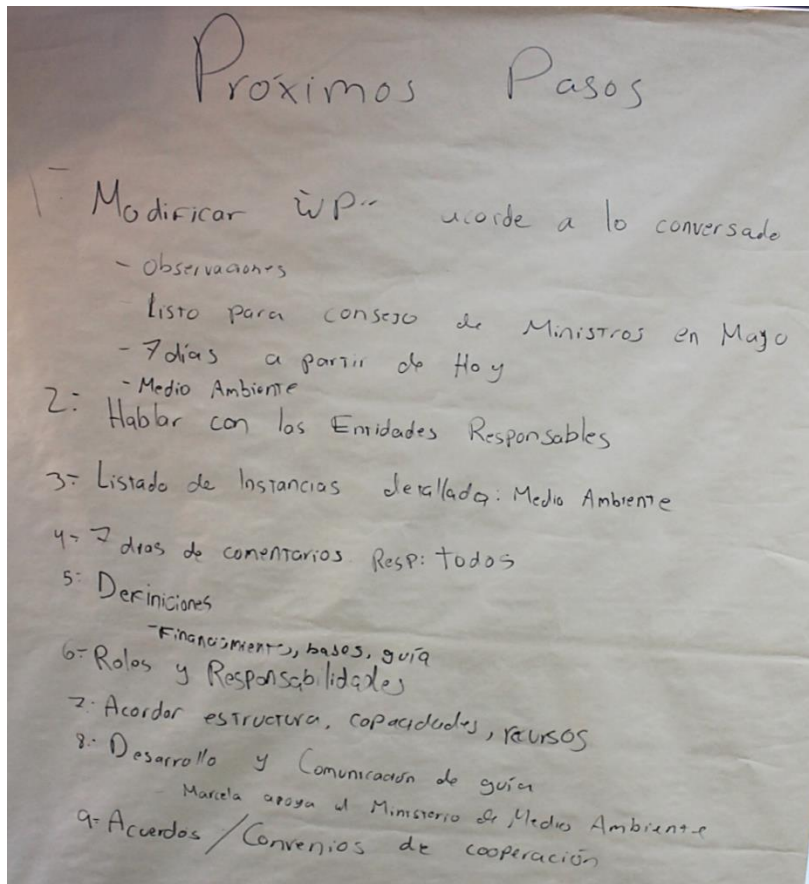 Próximos Pasos
1- Modificar WP" acorde a lo conversado
- Observaciones
Listo para consejo de Ministros en Mayo
- 7 días a partir de Hoy
- Medio Ambiente
2- Hablar con las Entidades Responsables
3- Listado de Instancias detallada: Medio Ambiente
4- 7 dias de comentarios Resp: todos
5- Definiciones
- Financiamiento, bases, guía
6- Roles y Responsabilidades
7- Acordar estructura, capacidades, recursos
8- Desarrollo y Comunicación de guía
Marcela apoya al Ministerio de Medio Ambiente
9- Acuerdos / Convenios de cooperación